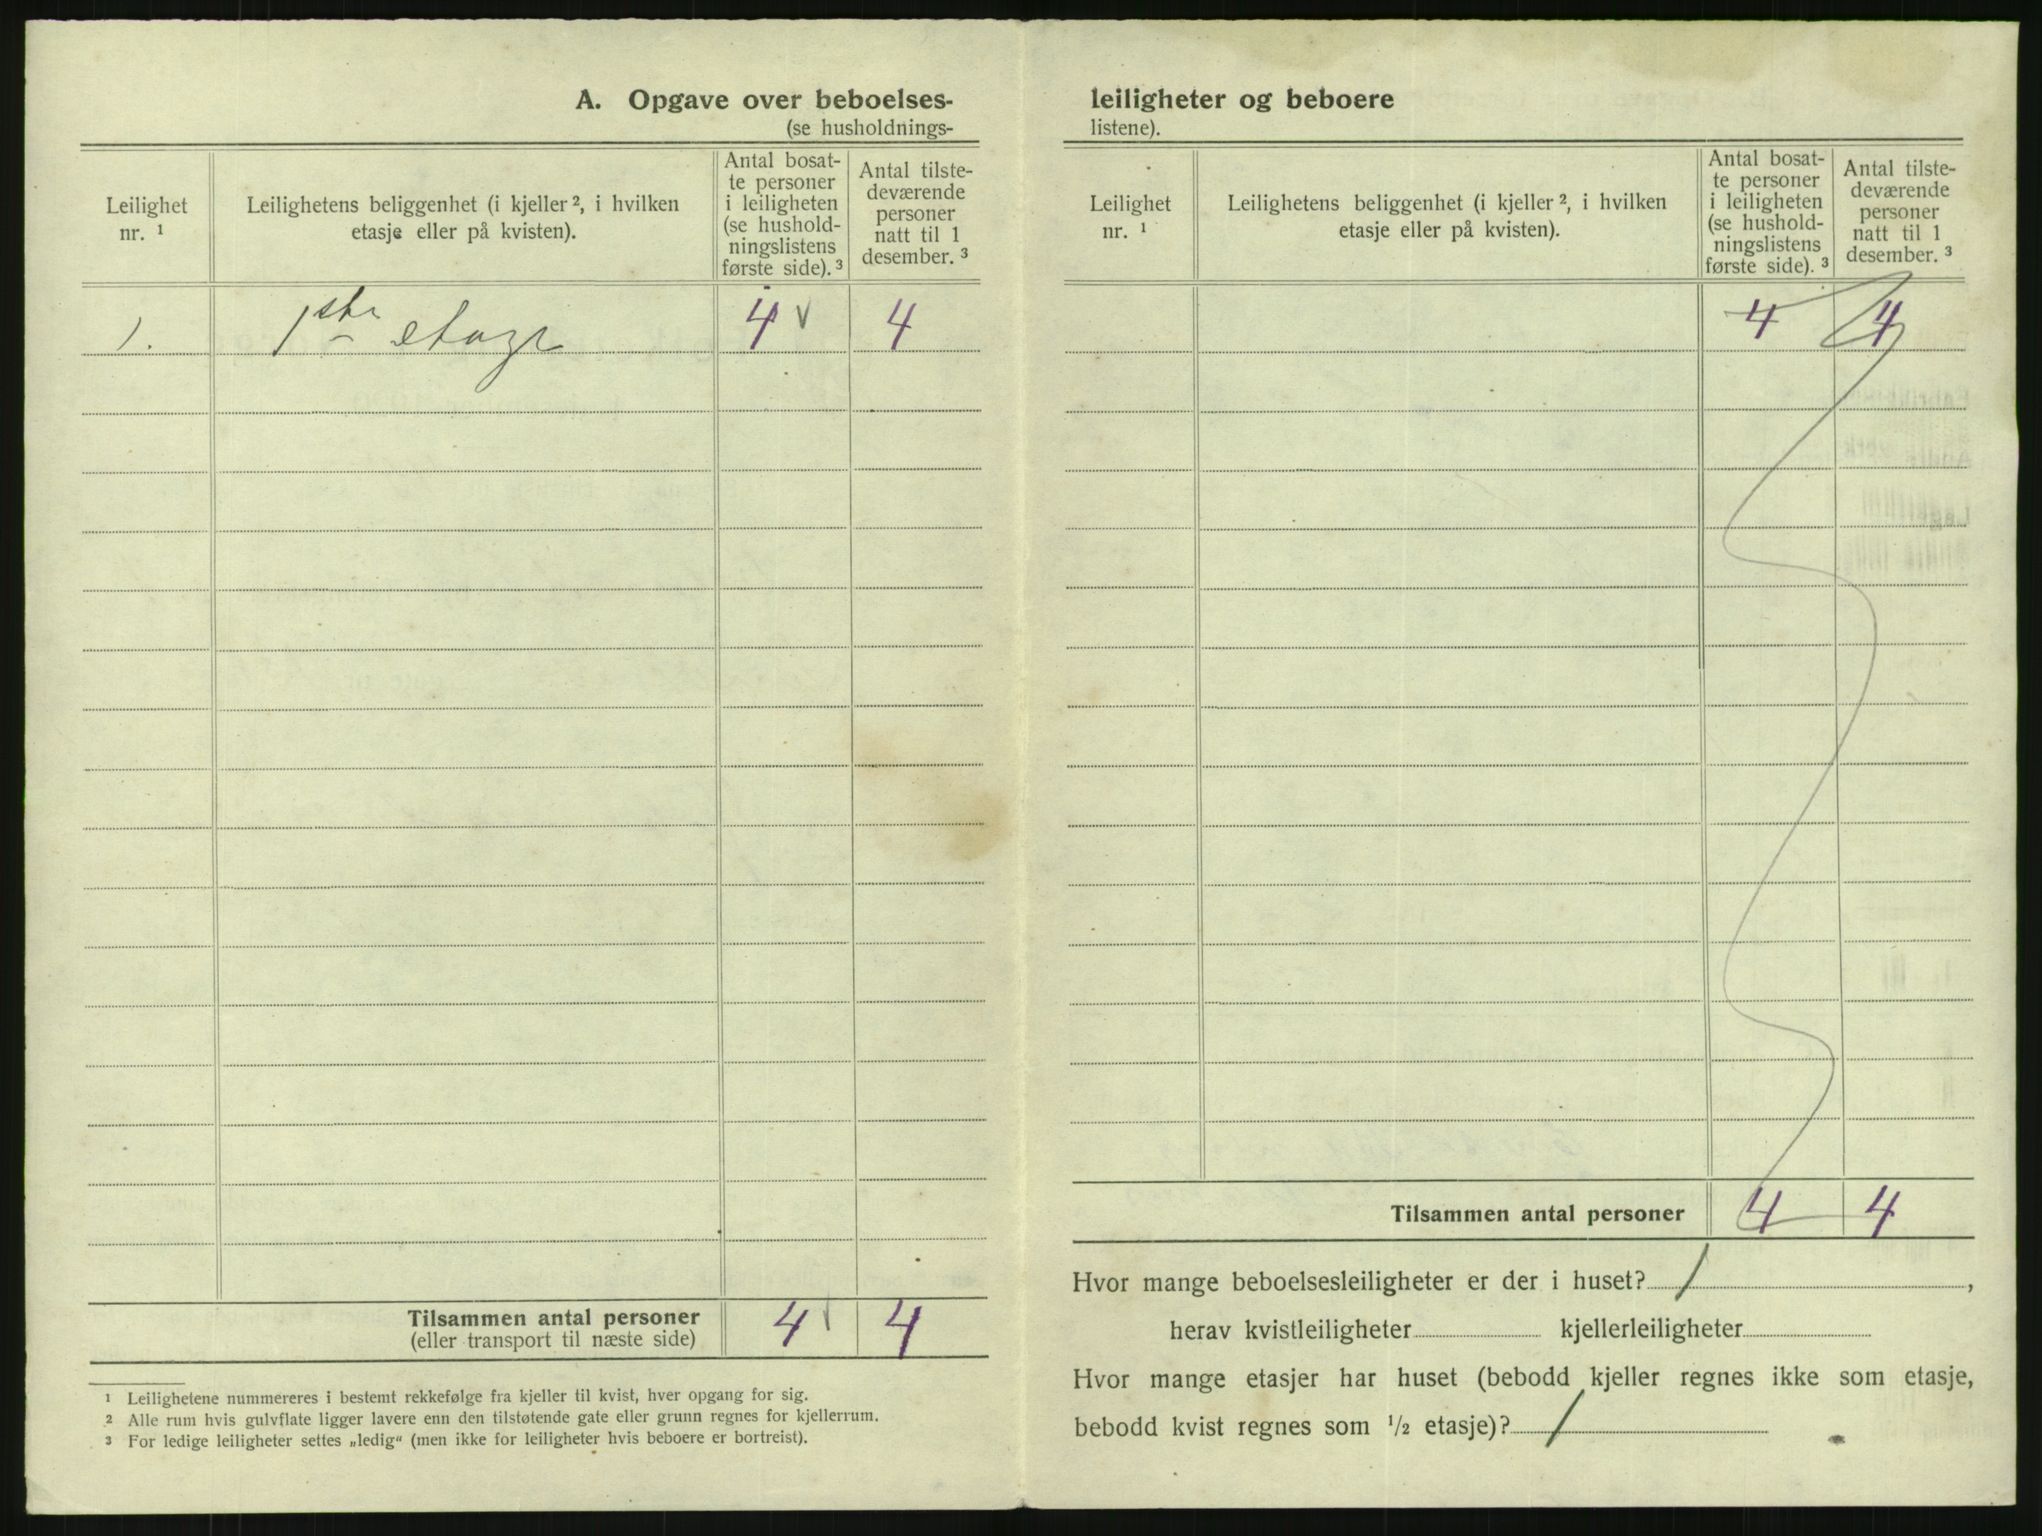 A. Opgave over beboelses-
(se husholdnings-
Leilighet nr. ¹
Leilighetens beliggenhet (i kjeller ², i hvilken etasje eller på kvisten).
Antal bosat-
te personer
i leiligheten
(se hushold-
ningslistens
første side). ³
Antal tilste-
deværende
personer
natt til 1
desember. ³
1. 1ste etage 4 √ 4
Tilsammen antal personer 4 √ 4
(eller transport til næste side)
¹ Leilighetene nummereres i bestemt rekkefølge fra kjeller til kvist, hver opgang for sig.
² Alle rum hvis gulvflate ligger lavere enn den tilstøtende gate eller grunn regnes for kjellerrum.
³ For ledige leiligheter settes „ledig“ (men ikke for leiligheter hvis beboere er bortreist).
leiligheter og beboere
listene).
Leilighet nr. ¹
Leilighetens beliggenhet (i kjeller ², i hvilken etasje eller på kvisten).
Antal bosat-
te personer
i leiligheten
(se hushold-
ningslistens
første side). ³
Antal tilste-
deværende
personer
natt til 1
desember. ³
4 4
Tilsammen antal personer 4 4
Hvor mange beboelsesleiligheter er der i huset? 1 ,
herav kvistleiligheter kjellerleiligheter
Hvor mange etasjer har huset (bebodd kjeller regnes ikke som etasje,
bebodd kvist regnes som ½ etasje)? 1